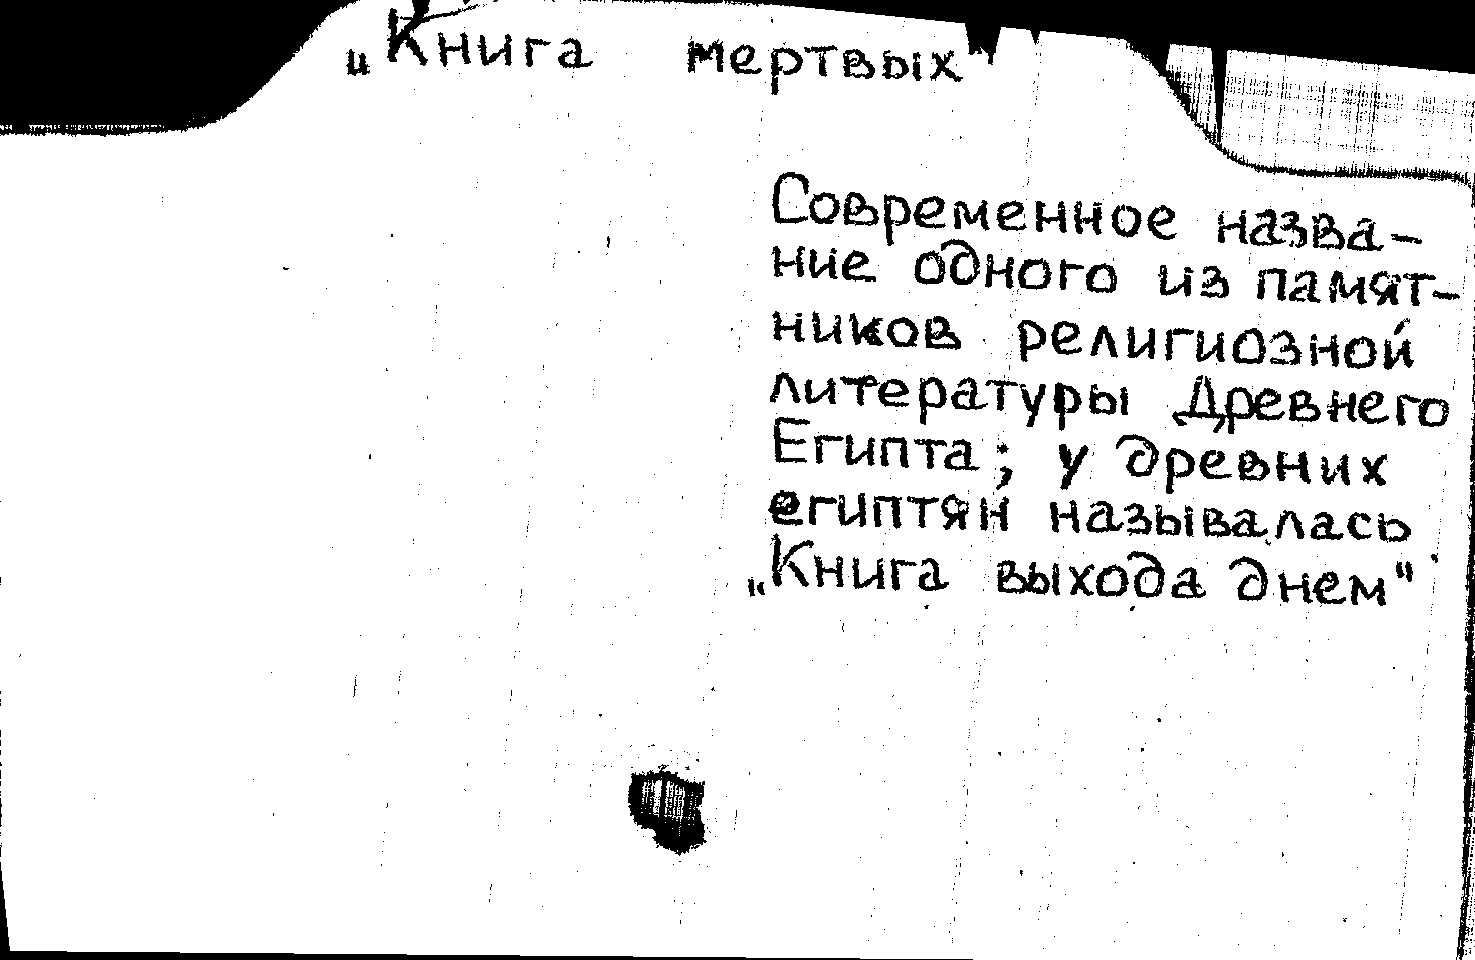 „Книга мертвых"
Современное назва-
ние одного из памят-
ников религиозной
литературы Древнего
Египта; у древних
египтян называлась
„Книга выхода днем"